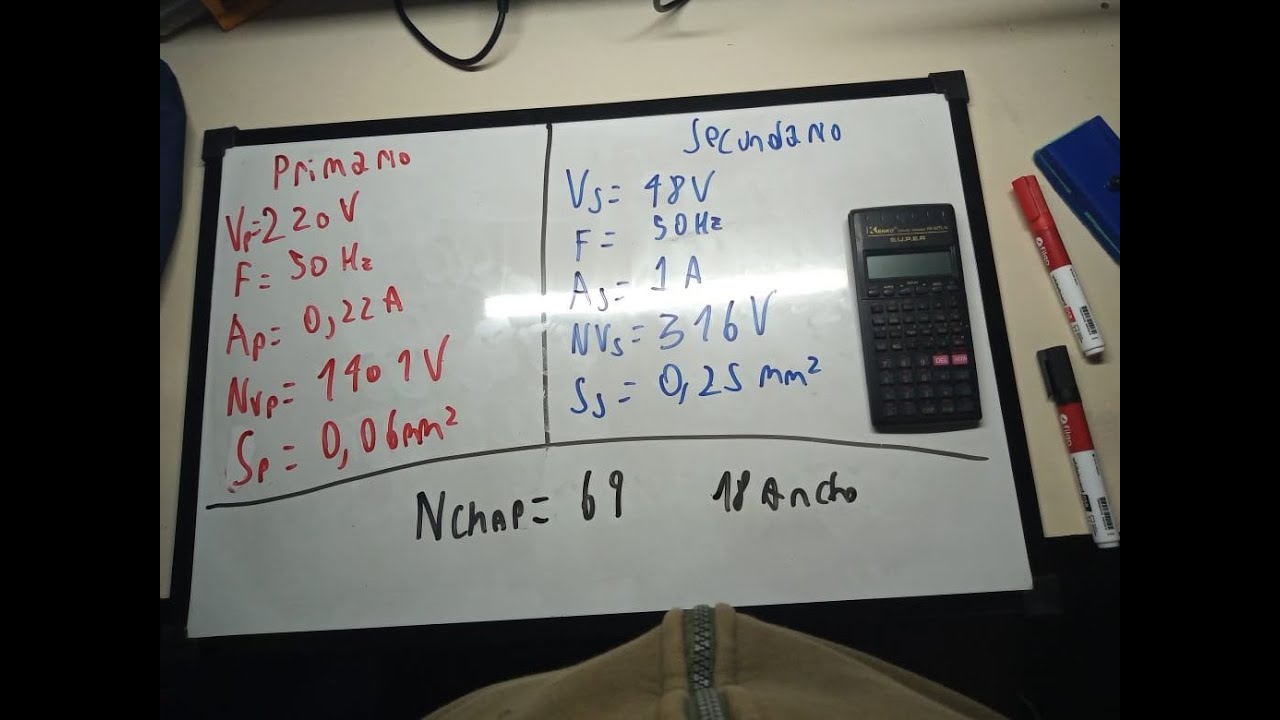 Primario
Vp=220V
F= 50 Hz
Ap= 0,22A
Nvp= 1401V
Sp= 0,06mm²
Secundario
Vs= 48V
F= 50Hz
As= 1A
NVs= 316V
Ss= 0,25 mm²
Nchap= 69 18 Ancho
Kenko
SUPER
Filgo
Filgo